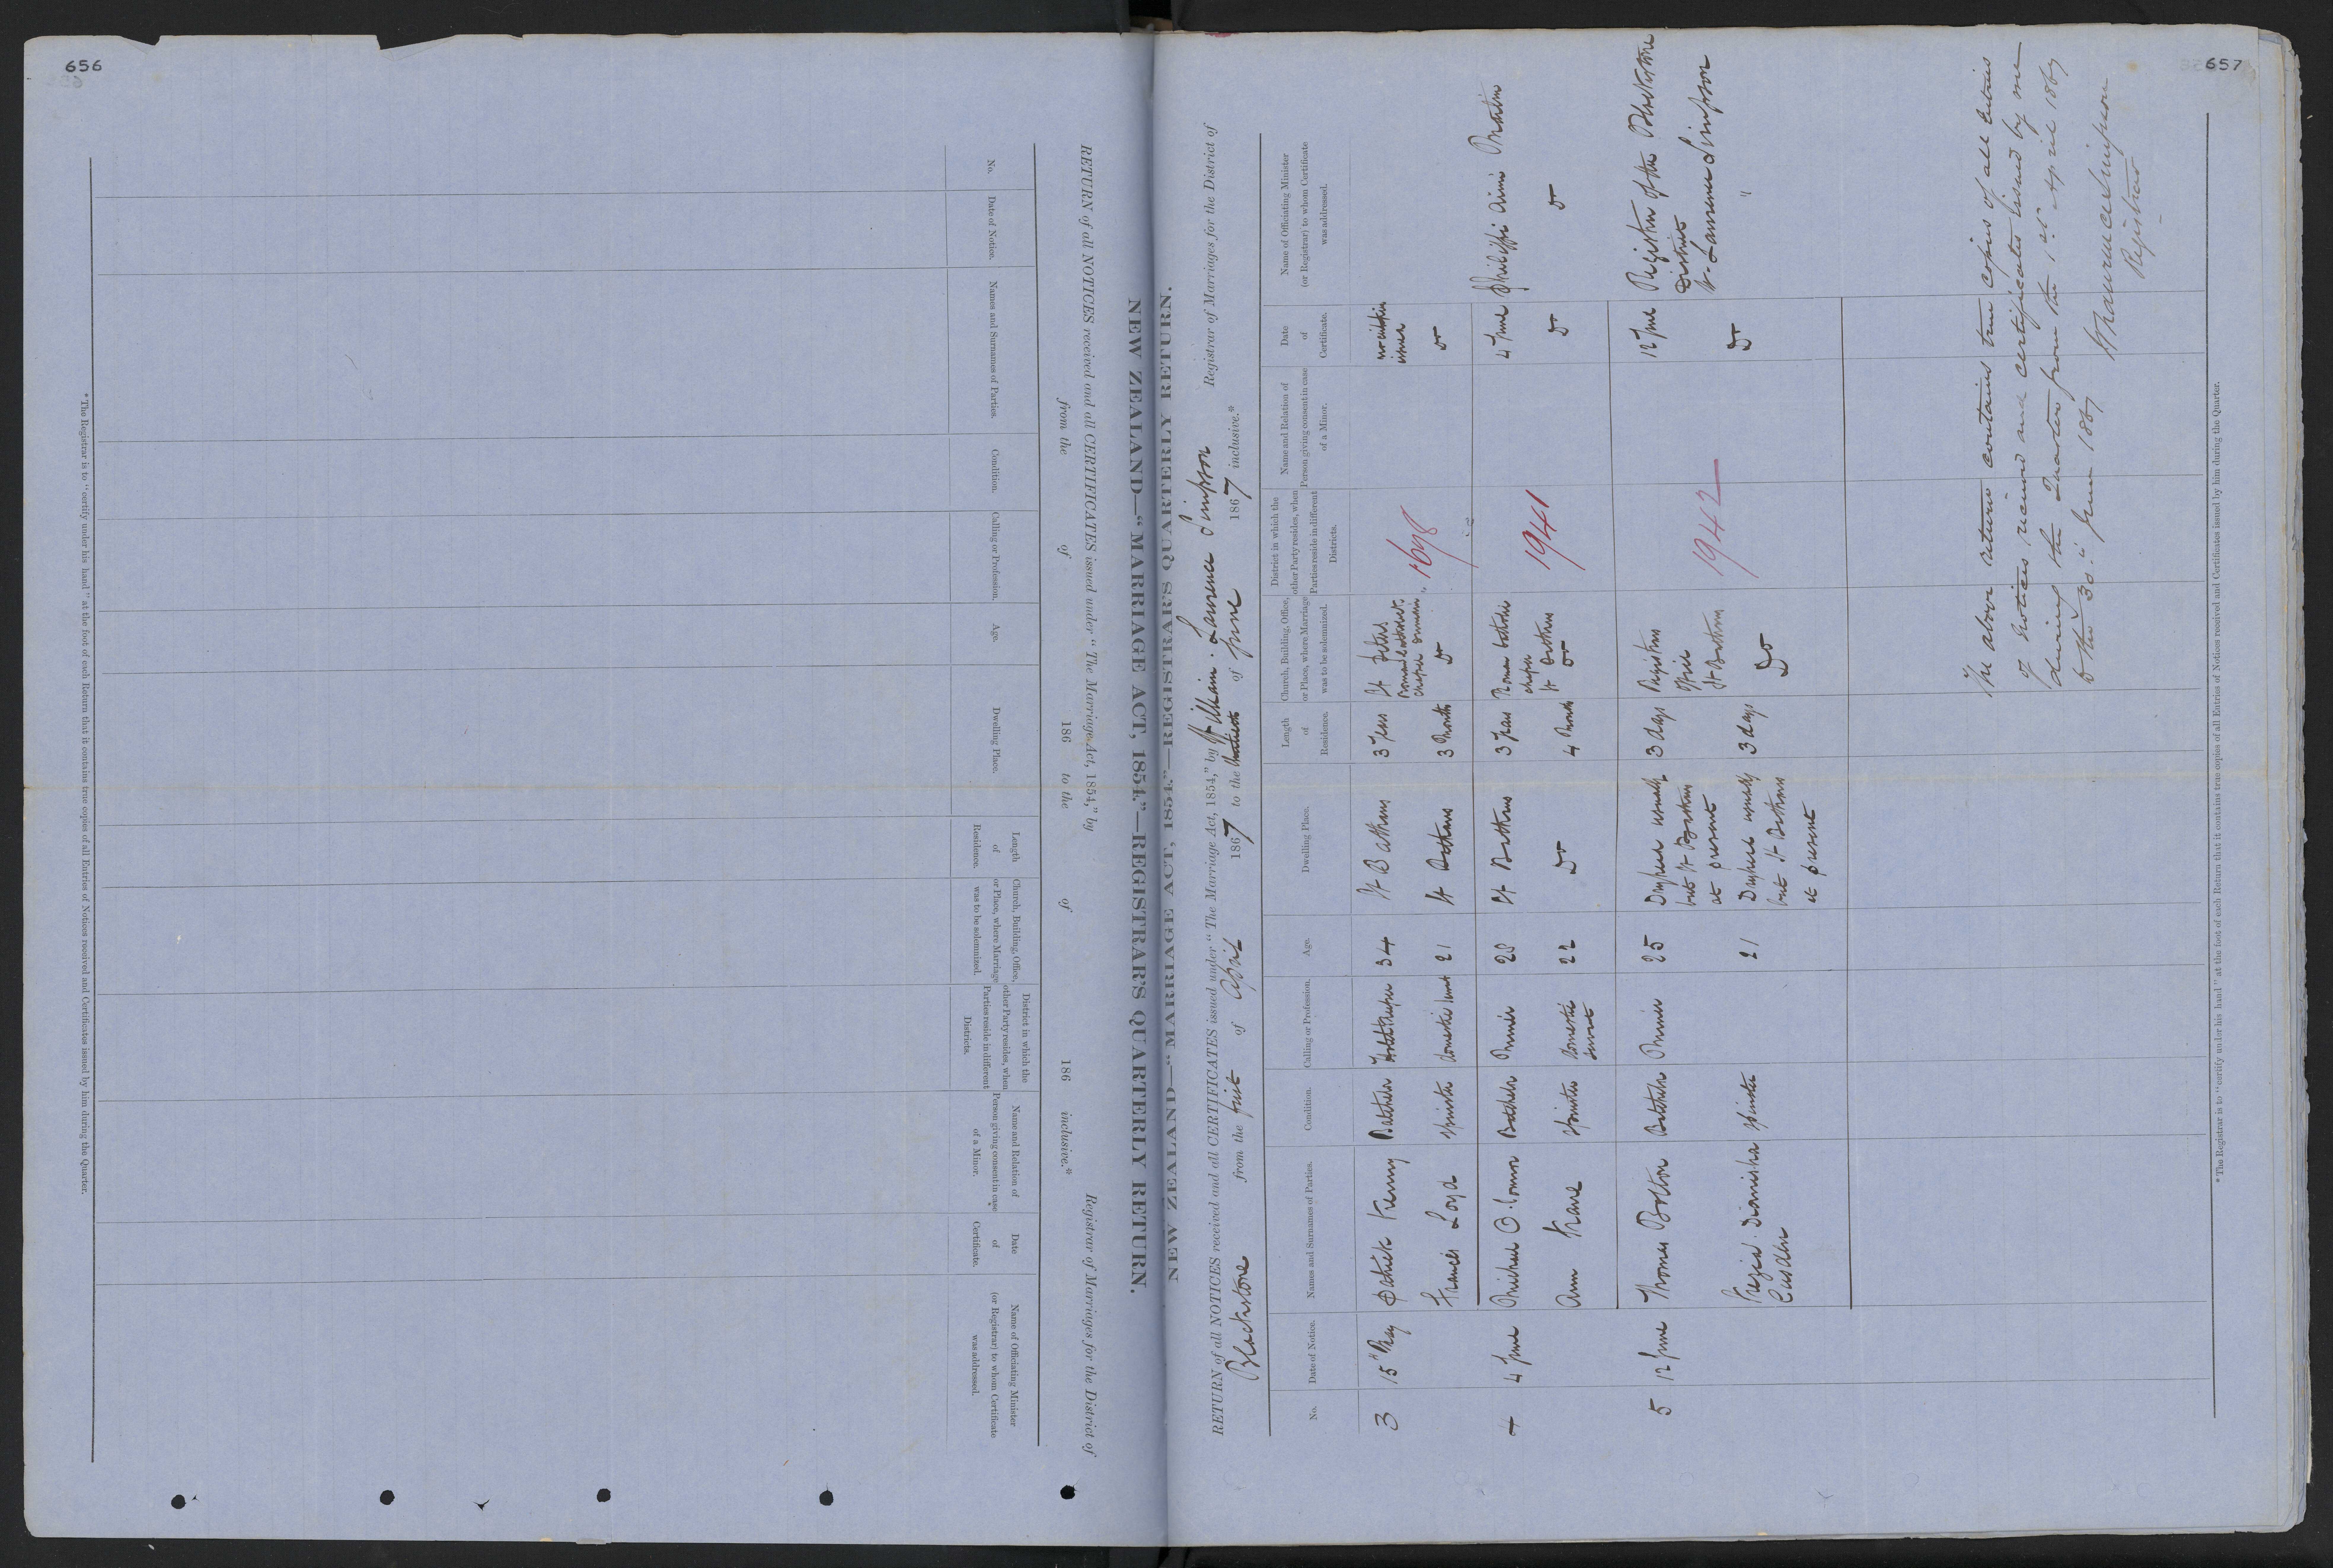 656
NEW ZEALAND—"MARRIAGE ACT, 1854."—REGISTRAR'S QUARTERLY RETURN.
RETURN of all NOTICES received and all CERTIFICATES issued under "The Marriage Act, 1854," by Registrar of Marriages for the District of
from the of 186 to the of 186 inclusive.*
No.
Date of Notice.
Names and Surnames of Parties.
Condition.
Calling or Profession.
Age.
Dwelling Place.
Length
of
Residence.
Church, Building, Office,
or Place, where Marriage
was to be solemnized.
District in which the
other Party resides, when
Parties reside in different
Districts.
Name and Relation of
Person giving consent in case
of a Minor.
Date
of
Certificate.
Name of Officiating Minister
(or Registrar) to whom Certificate
was addressed.
*The Registrar is to "certify under his hand" at the foot of each Return that it contains true copies of all Entries of Notices received and Certificates issued by him during the Quarter.
657
NEW ZEALAND—"MARRIAGE ACT, 1854."—REGISTRAR'S QUARTERLY RETURN.
RETURN of all NOTICES received and all CERTIFICATES issued under "The Marriage Act, 1854," by William Laurence Simpson Registrar of Marriages for the District of
Blackstone from the first of April 1867 to the thirtieth of June 1867 inclusive.*
No.
Date of Notice.
Names and Surnames of Parties.
Condition.
Calling or Profession.
Age.
Dwelling Place.
Length
of
Residence.
Church, Building, Office,
or Place, where Marriage
was to be solemnized.
District in which the
other Party resides, when
Parties reside in different
Districts.
Name and Relation of
Person giving consent in case
of a Minor.
Date
of
Certificate.
Name of Officiating Minister
(or Registrar) to whom Certificate
was addressed.
3 15 May Patrick Kenny Batchelor Hotel Keeper 34 St Bathans 3 Years St Peters
Roman Catholic
chapel
Frances Loyd Spinster domestic 21 St Bathans 3 Month Do Do
1698
4 4 June Michael O'Connor Batchelor Miner 28 St Bathans 3 Years Roman Catholic
chapel
St Bathans
1941 4 June Martin
Ann Kane Spinster Domestic
Servant
22 Do 4 Month Do Do Do
5 12 June Thomas Bolton Batchelor Miner 25 Drybread usually
but St Bathans
at present
3 days Registrars
Office
St Bathans
1942 12 June Registrar of the Blackstone
District
W. Laurence Simpson
Keziah Dionisha
Spinster 21 Drybread usually
but St Bathans
at present
3 days Do Do "
The above return contains true copies of all entries
of notices received and certificates issued by me
during the Quarter from the 1st April 1867
to the 30th June 1867
W Laurence Simpson
Registrar
*The Registrar is to "certify under his hand" at the foot of each Return that it contains true copies of all Entries of Notices received and Certificates issued by him during the Quarter.